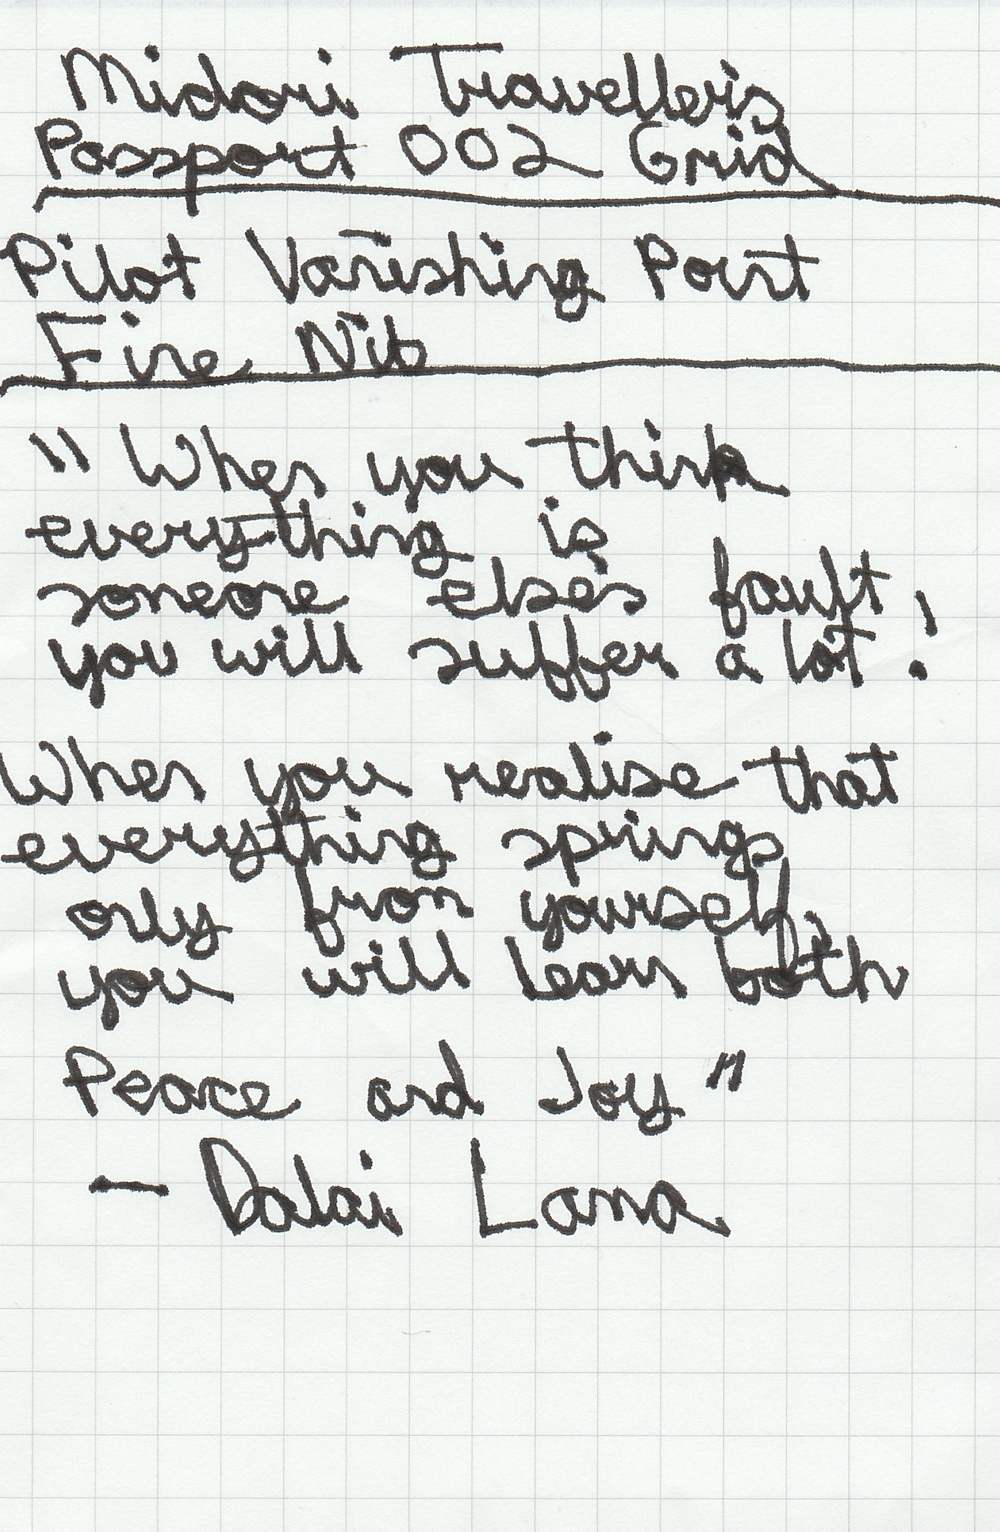 Midori Traveller's
Passport 002 Grid
Pilot Vanishing Point
Fine Nib
"When you think
everything is
someone else's fault,
you will suffer a lot!
When you realise that
everything springs
only from yourself,
you will learn both
Peace and Joy"
- Dalai Lama